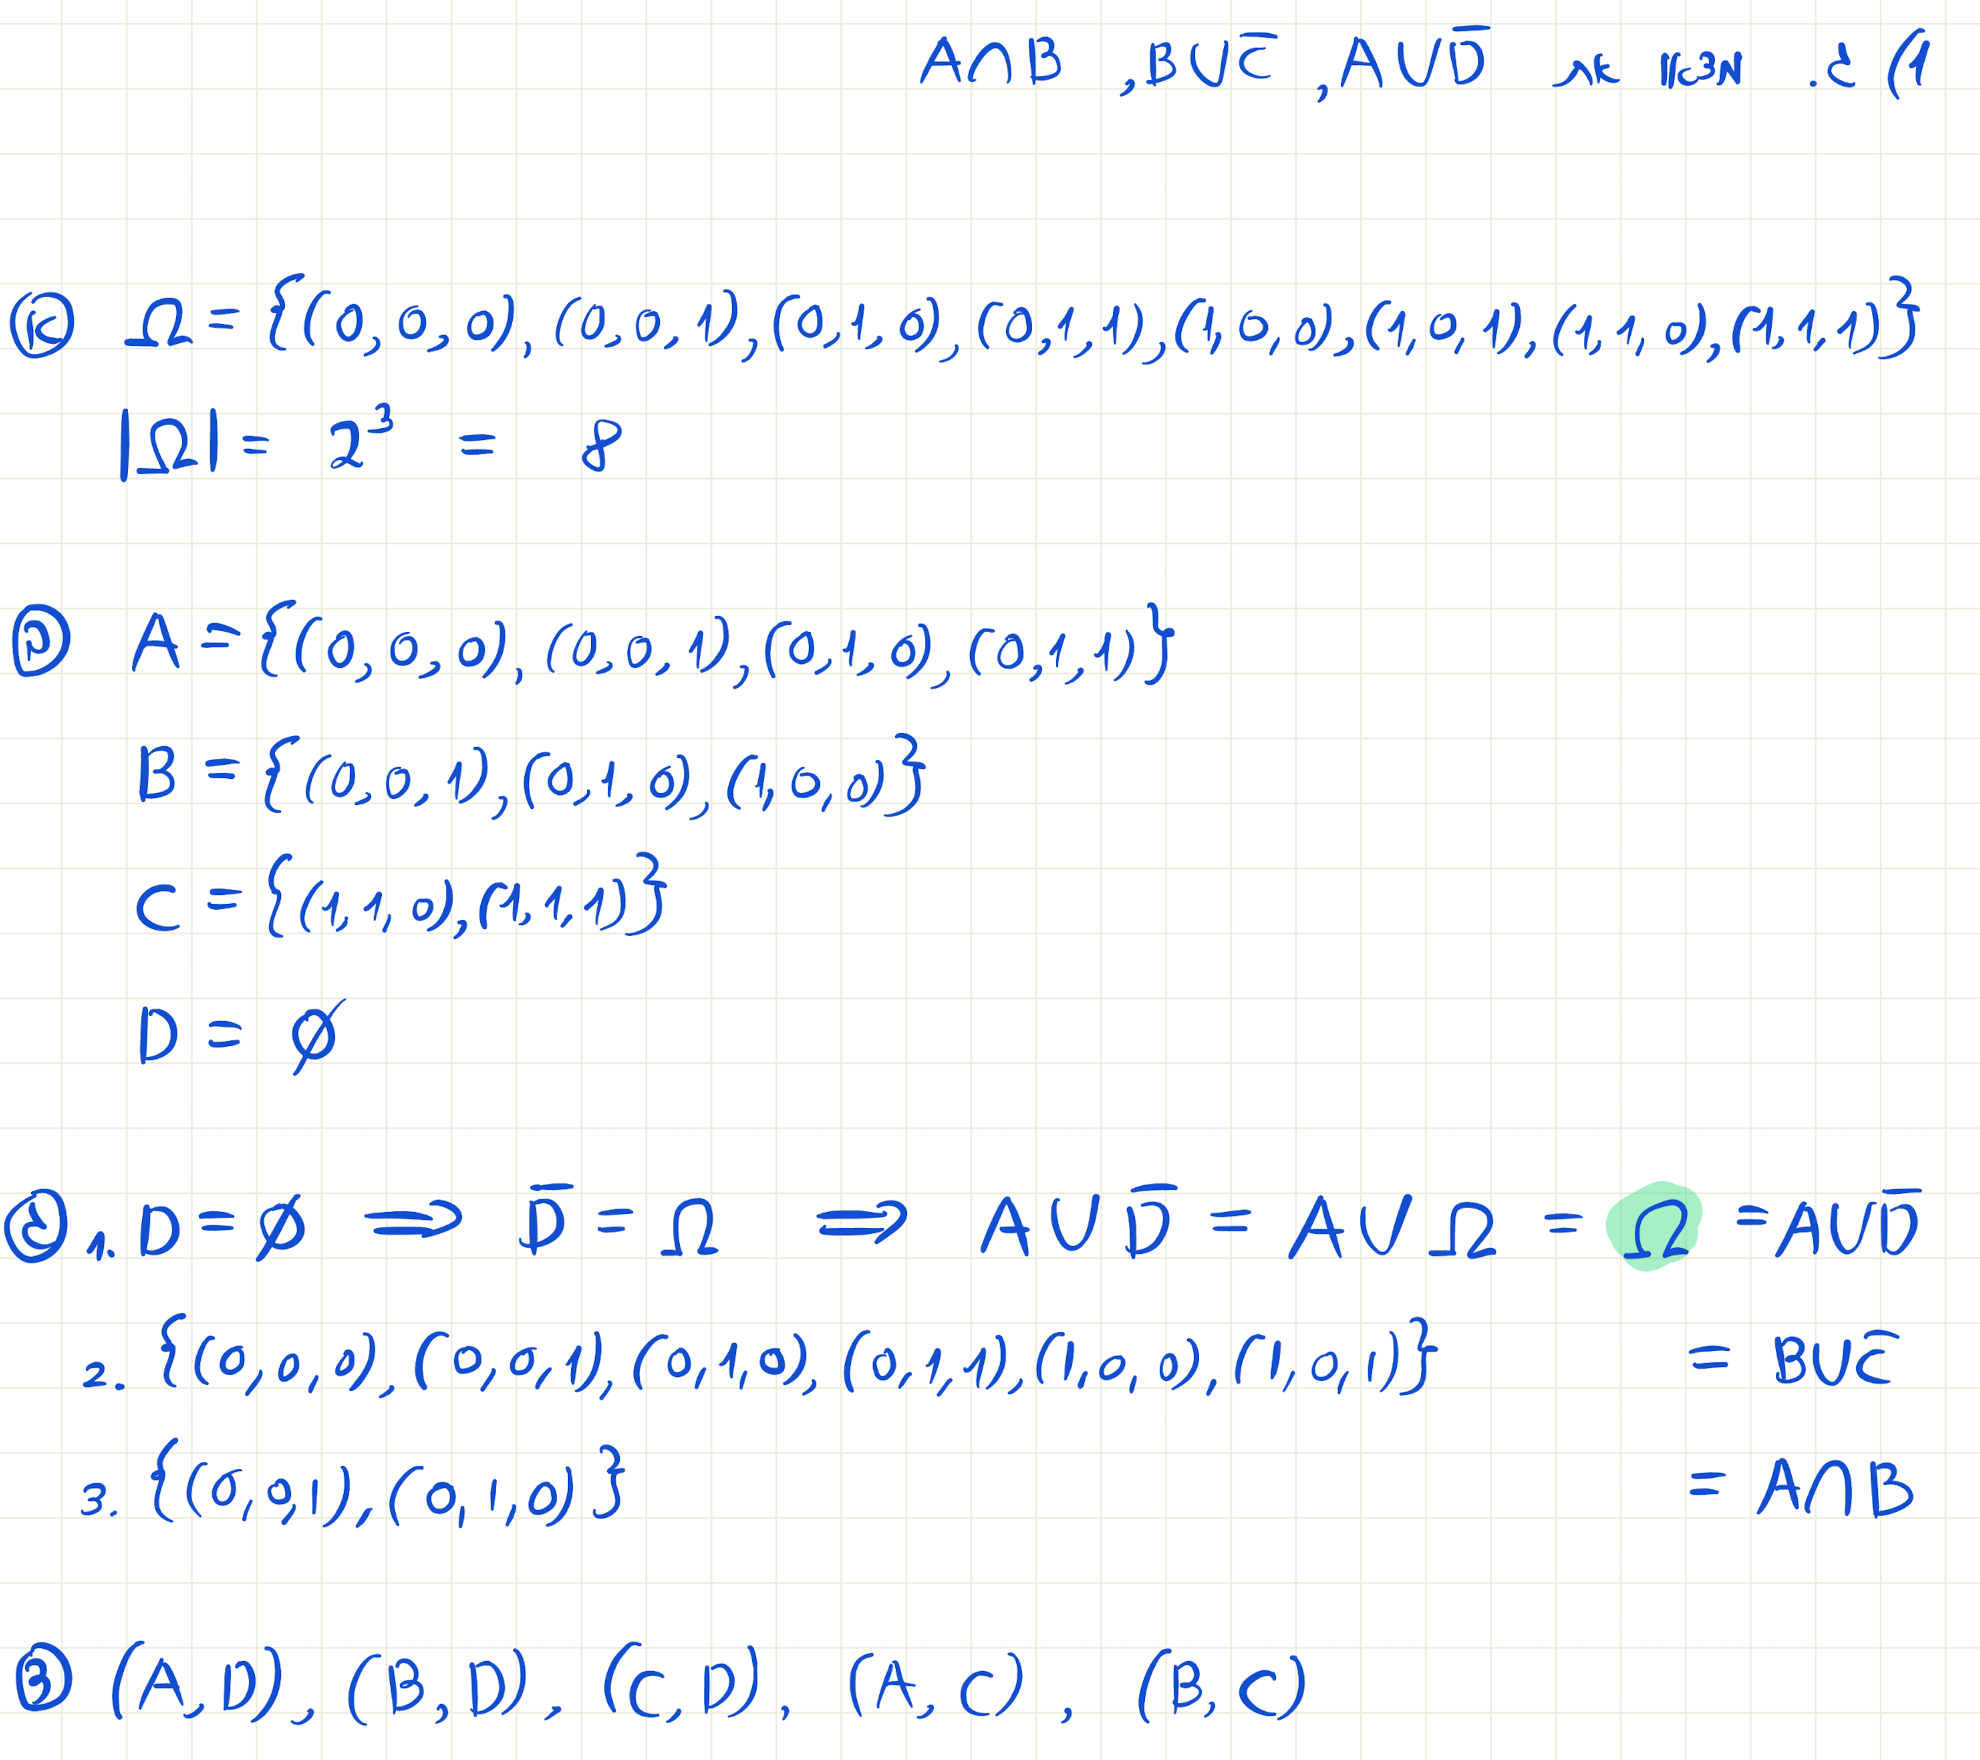 1) ג. מצאו את A∩B ,B∪C̅ ,A∪D̅
א Ω = {(0,0,0),(0,0,1),(0,1,0),(0,1,1),(1,0,0),(1,0,1),(1,1,0),(1,1,1)}
|Ω| = 2³ = 8
ב A = {(0,0,0),(0,0,1),(0,1,0),(0,1,1)}
B = {(0,0,1),(0,1,0),(1,0,0)}
C = {(1,1,0),(1,1,1)}
D = ∅
ג 1. D = ∅ ⟹ D̅ = Ω ⟹ A∪D̅ = A∪Ω = Ω = A∪D̅
2. {(0,0,0),(0,0,1),(0,1,0),(0,1,1),(1,0,0),(1,0,1)} = B∪C̅
3. {(0,0,1),(0,1,0)} = A∩B
3 (A,D), (B,D), (C,D), (A,C), (B,C)